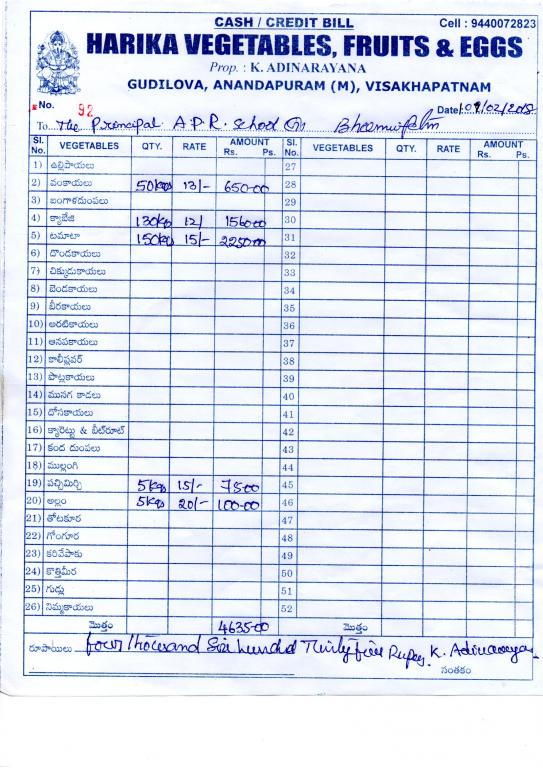 CASH / CREDIT BILL Cell : 9440072823
HARIKA VEGETABLES, FRUITS & EGGS
Prop. : K. ADINARAYANA
GUDILOVA, ANANDAPURAM (M), VISAKHAPATNAM
No. 92 Date 09/02/2018
To The Principal A.P.R. School
Sl. No. VEGETABLES QTY. RATE AMOUNT Rs. Ps. Sl. No. VEGETABLES QTY. RATE AMOUNT Rs. Ps.
1) ఉల్లిపాయలు 27
2) వంకాయలు 50kgs 13/- 650-00 28
3) బంగాళదుంపలు 29
4) క్యాబేజి 130kg 12/ 1560-00 30
5) టమాటా 150kg 15/- 2250-00 31
6) దొండకాయలు 32
7) చిక్కుడుకాయలు 33
8) బెండకాయలు 34
9) బీరకాయలు 35
10) అరటికాయలు 36
11) ఆనపకాయలు 37
12) కాలీఫ్లవర్ 38
13) పొట్లకాయలు 39
14) మునగ కాడలు 40
15) దోసకాయలు 41
16) క్యారెట్టు & బీట్‌రూట్ 42
17) కంద దుంపలు 43
18) ముల్లంగి 44
19) పచ్చిమిర్చి 5kgs 15/- 75-00 45
20) అల్లం 5kgs 20/- 100-00 46
21) తోటకూర 47
22) గోంగూర 48
23) కరివేపాకు 49
24) కొత్తిమీర 50
25) గుడ్లు 51
26) నిమ్మకాయలు 52
మొత్తం 4635-00 మొత్తం
రూపాయలు four thousand Six hundred Thirty five Rupees K. Adinarayana
సంతకం